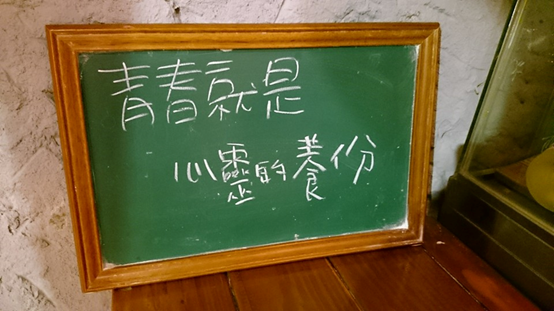 青春就是
心靈的養份